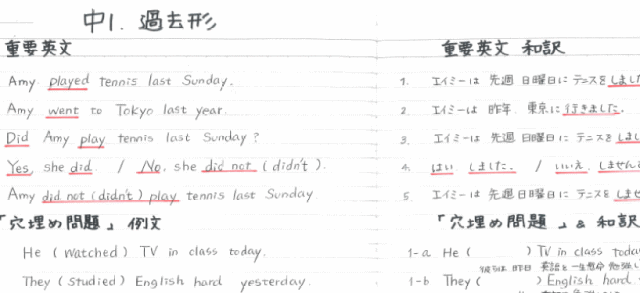 中1. 過去形
重要英文
Amy played tennis last Sunday.
Amy went to Tokyo last year.
Did Amy play tennis last Sunday?
Yes, she did / No, she did not (didn't).
Amy did not (didn't) play tennis last Sunday
「穴埋め問題」例文
He (watched) TV in class today.
They (studied) English hard yesterday.
重要英文 和訳
1. エイミーは 先週 日曜日に テニスを しました
2. エイミーは 昨年 東京に 行きました.
3. エイミーは 先週 日曜日に テニスを しま
4. はい しました. / いいえ しません
5 エイミーは 先週 日曜日に テニスを しませ
「穴埋め問題」& 和訳
1-a He ( ) TV in class today
彼らは 昨日 英語を 一生懸命 勉強し
1-b They ( ) English hard